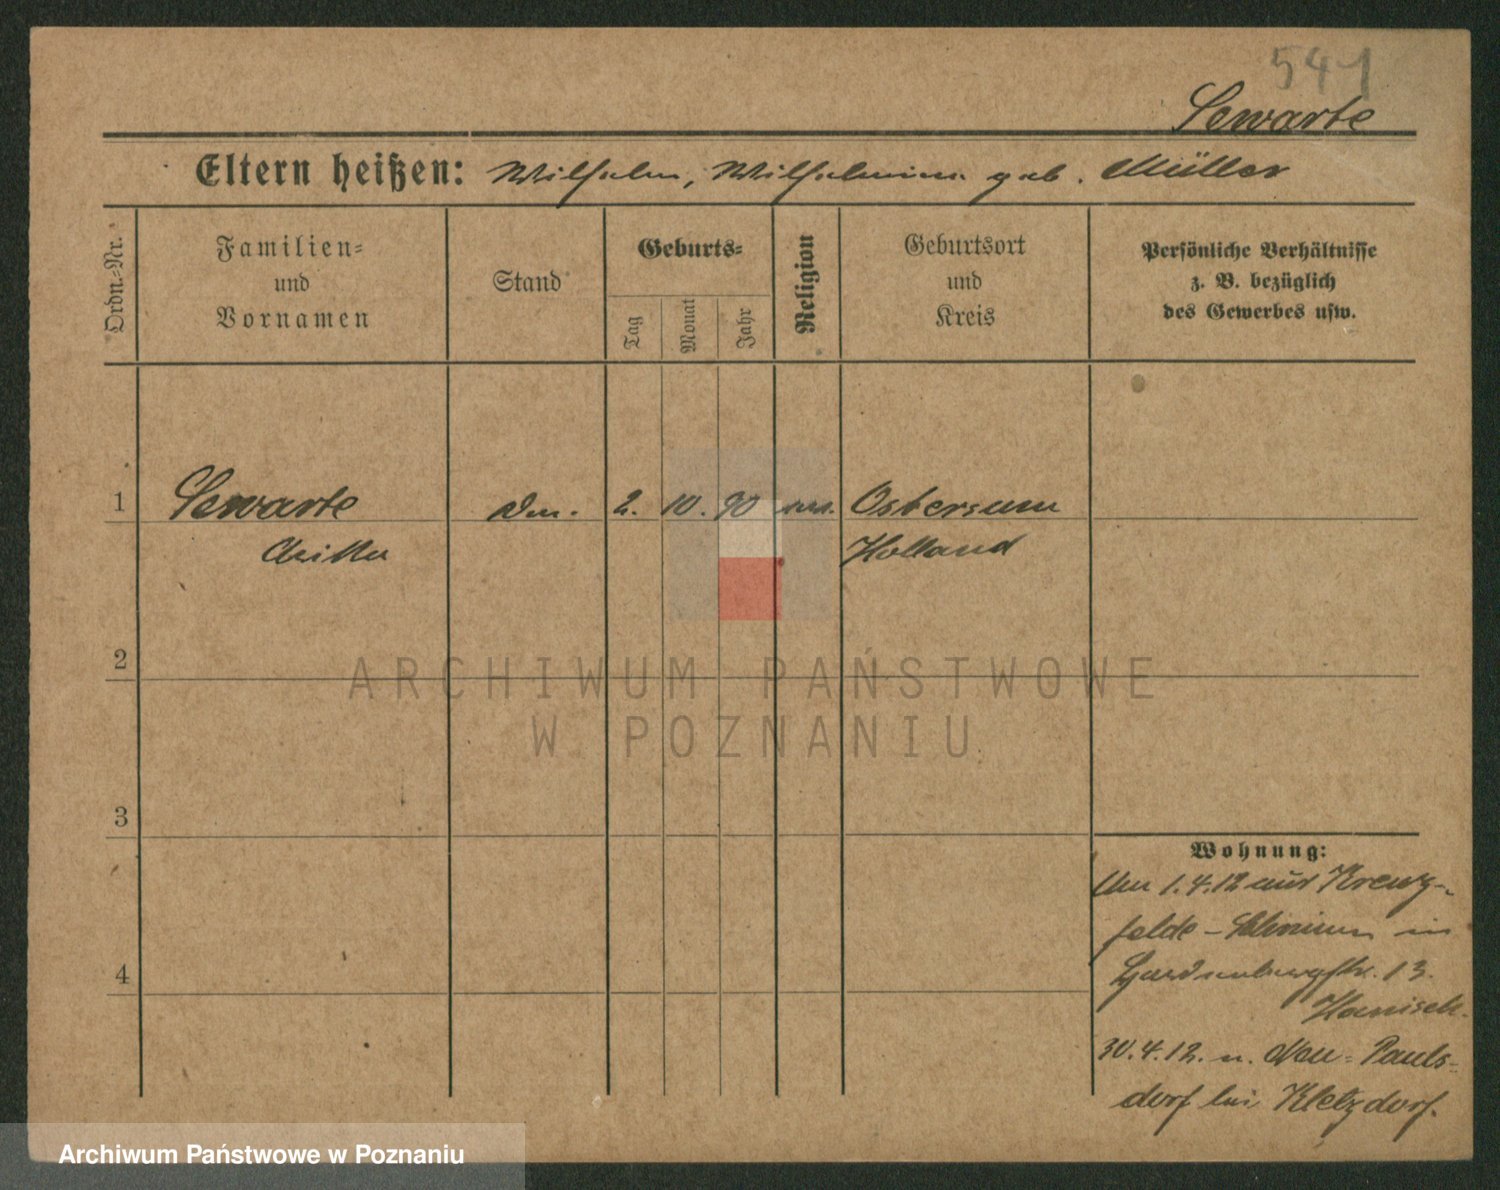 541
Sewarte
Eltern heißen: Wilhelm, Wilhelmine geb. Müller
Ordn.-Nr.
Familien-
und
Vornamen
Stand
Geburts-
Tag
Monat
Jahr
Religion
Geburtsort
und
Kreis
Persönliche Verhältnisse
z. B. bezüglich
des Gewerbes usw.
1 Sewarte 2. 10. 90 Ostersum
Holland
2
3
4
Wohnung:
Am 1.4.12 aus Kreuz-
felde - in
Gardenburgstr. 13.
Hanisch.
30.4.12. n. Neu-Pauls-
dorf bei Kletzdorf.
ARCHIWUM PAŃSTWOWE
W POZNANIU
Archiwum Państwowe w Poznaniu